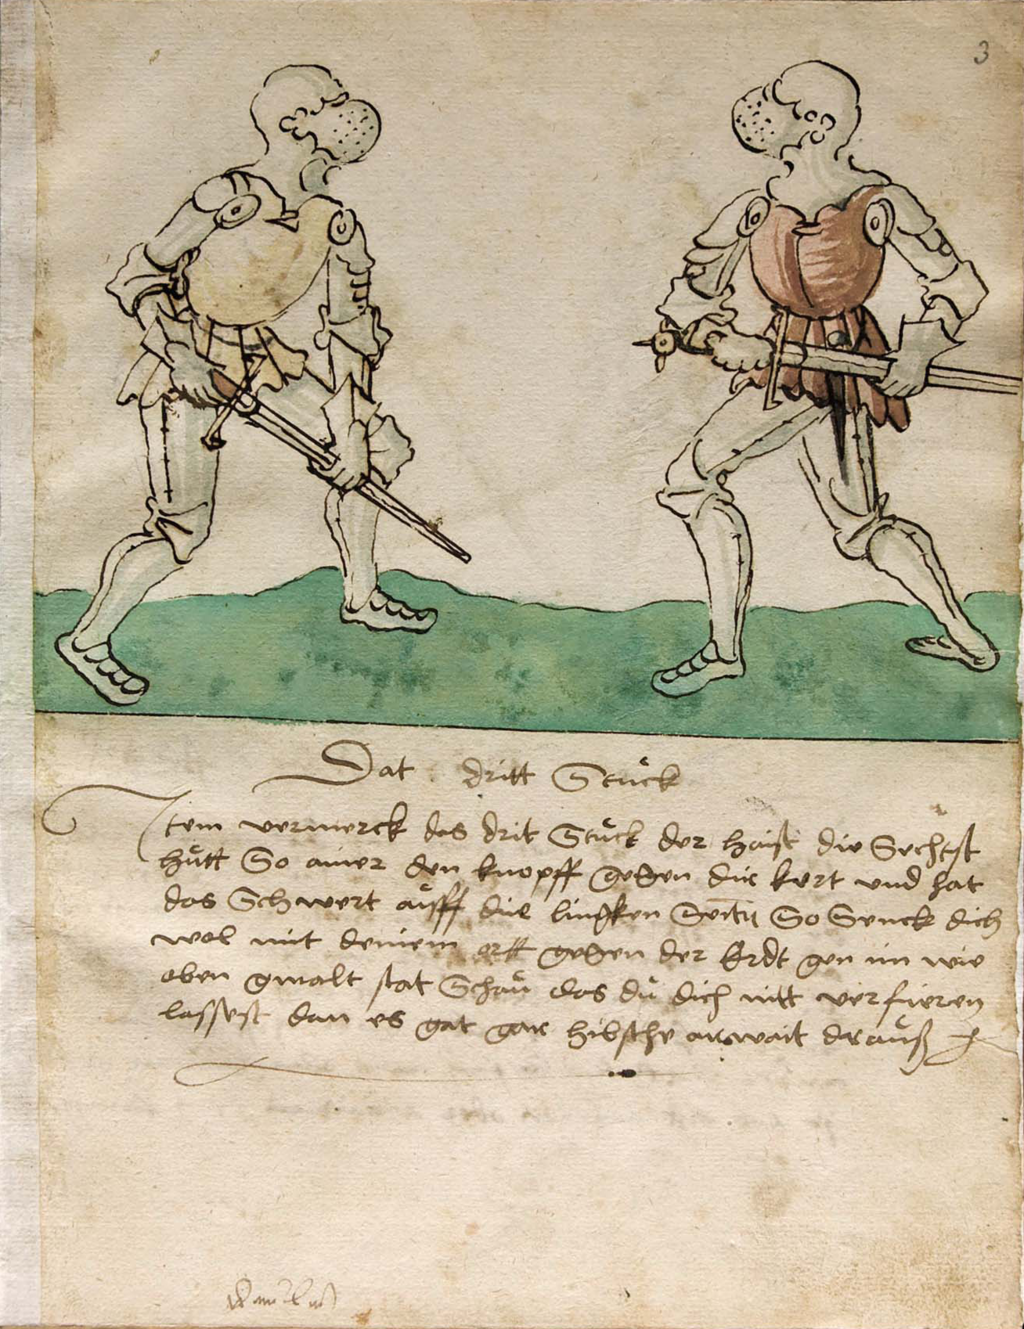 3
Dat dritt Stuck
Item vermerck das drit Stuck der haist die Sechst
hutt So ainer den knopff gegen dir kert und hat
das Schwert auff die lingken Seitn So Senck dich
wol mit deinem ortt gegen der Erdt gen im wie
oben gmalt stat Schau das du dich nitt verfueren
lassest dan es gat gar hibsche arwait drauß